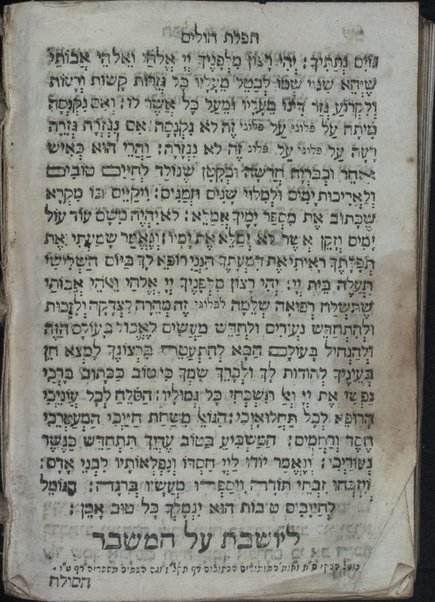 תפלת חולים
גוים נתתיך: יהי רצון מלפניך יי אלהי ואלהי אבותי
שיהא שנוי שמו לבטל מעליו כל גזרות קשות ורעות
ולקרוע גזר דינו מעליו ומעל כל אשר לו: ואם נקנסה
מיתה על פלוני על פלוני זה לא נקנסה אם נגזרה גזרה
רעה על פלוני על פלוני זה לא נגזרה: והרי הוא כאיש
אחר וכבריה חדשה וכקטן שנולד לחיים טובים
ולאריכות ימים ולמלוי שנים וזמנים: ויקויים בו מקרא
שכתוב את מספר ימיך אמלא: לא יהיה משם עוד עול
ימים וזקן אשר לא ימלא את ימיו: ונאמר שמעתי את
תפלתך ראיתי את דמעתך הנני רופא לך ביום השלישי
תעלה בית יי: יהי רצון מלפניך יי אלהי ואלהי אבותי
שתשלח רפואה שלמה לפלוני זה מהרה לצדקה ולזכות
ולהתחדש נעורים ולחדש מעשים לאכול בעולם הזה
ולהנחול בעולם הבא להתעטר ברצונך למצא חן
בעיניך להודות לך ולברך שמך כי טוב ככתוב ברכי
נפשי את יי ואל תשכחי כל גמוליו: הסלח לכל עוניכי
הרופא לכל תחלואיכי: הגואל משחת חייכי המעטרכי
חסד ורחמים: המשביע בטוב עדיך תתחדש כנשר
נעוריכי: ונאמר יודו ליי חסדו ונפלאותיו לבני אדם:
ויזבחו זבחי תודה ויספרו מעשיו ברנה: הגומל
לחייבים טובות הוא יגמלך כל טוב אמן:
ליושבת על המשבר
הסולח